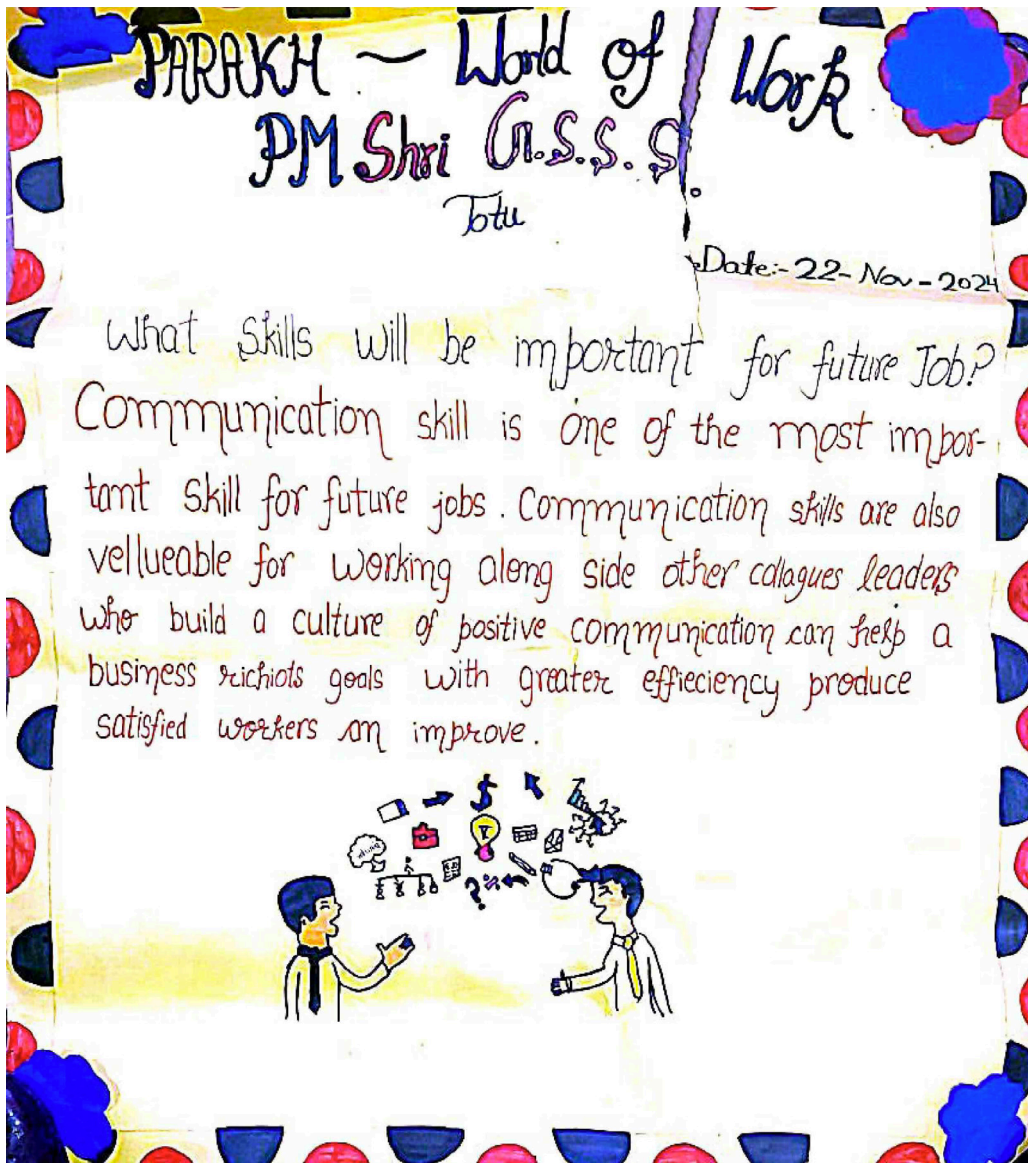 PARAKH ~ World of Work
PM Shri G.S.S.S.
Totu
Date:- 22- Nov - 2024
What Skills will be important for future Job?
Communication skill is one of the most impor-
tant skill for future jobs. Communication skills are also
vellueable for working along side other collagues leaders
who build a culture of positive communication can help a
business richiots goals with greater effieciency produce
satisfied workers an improve.
$
? %